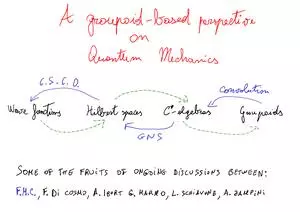 A groupoid-based perspective
on
Quantum Mechanics
C.S.C.O. Convolution
Wave functions Hilbert spaces C*-algebras Groupoids
GNS
SOME OF THE FRUITS OF ONGOING DISCUSSIONS BETWEEN:
F.M.C., F. DI COSMO, A. IBORT G. MARMO, L. SCHIAVONE, A. ZAMPINI